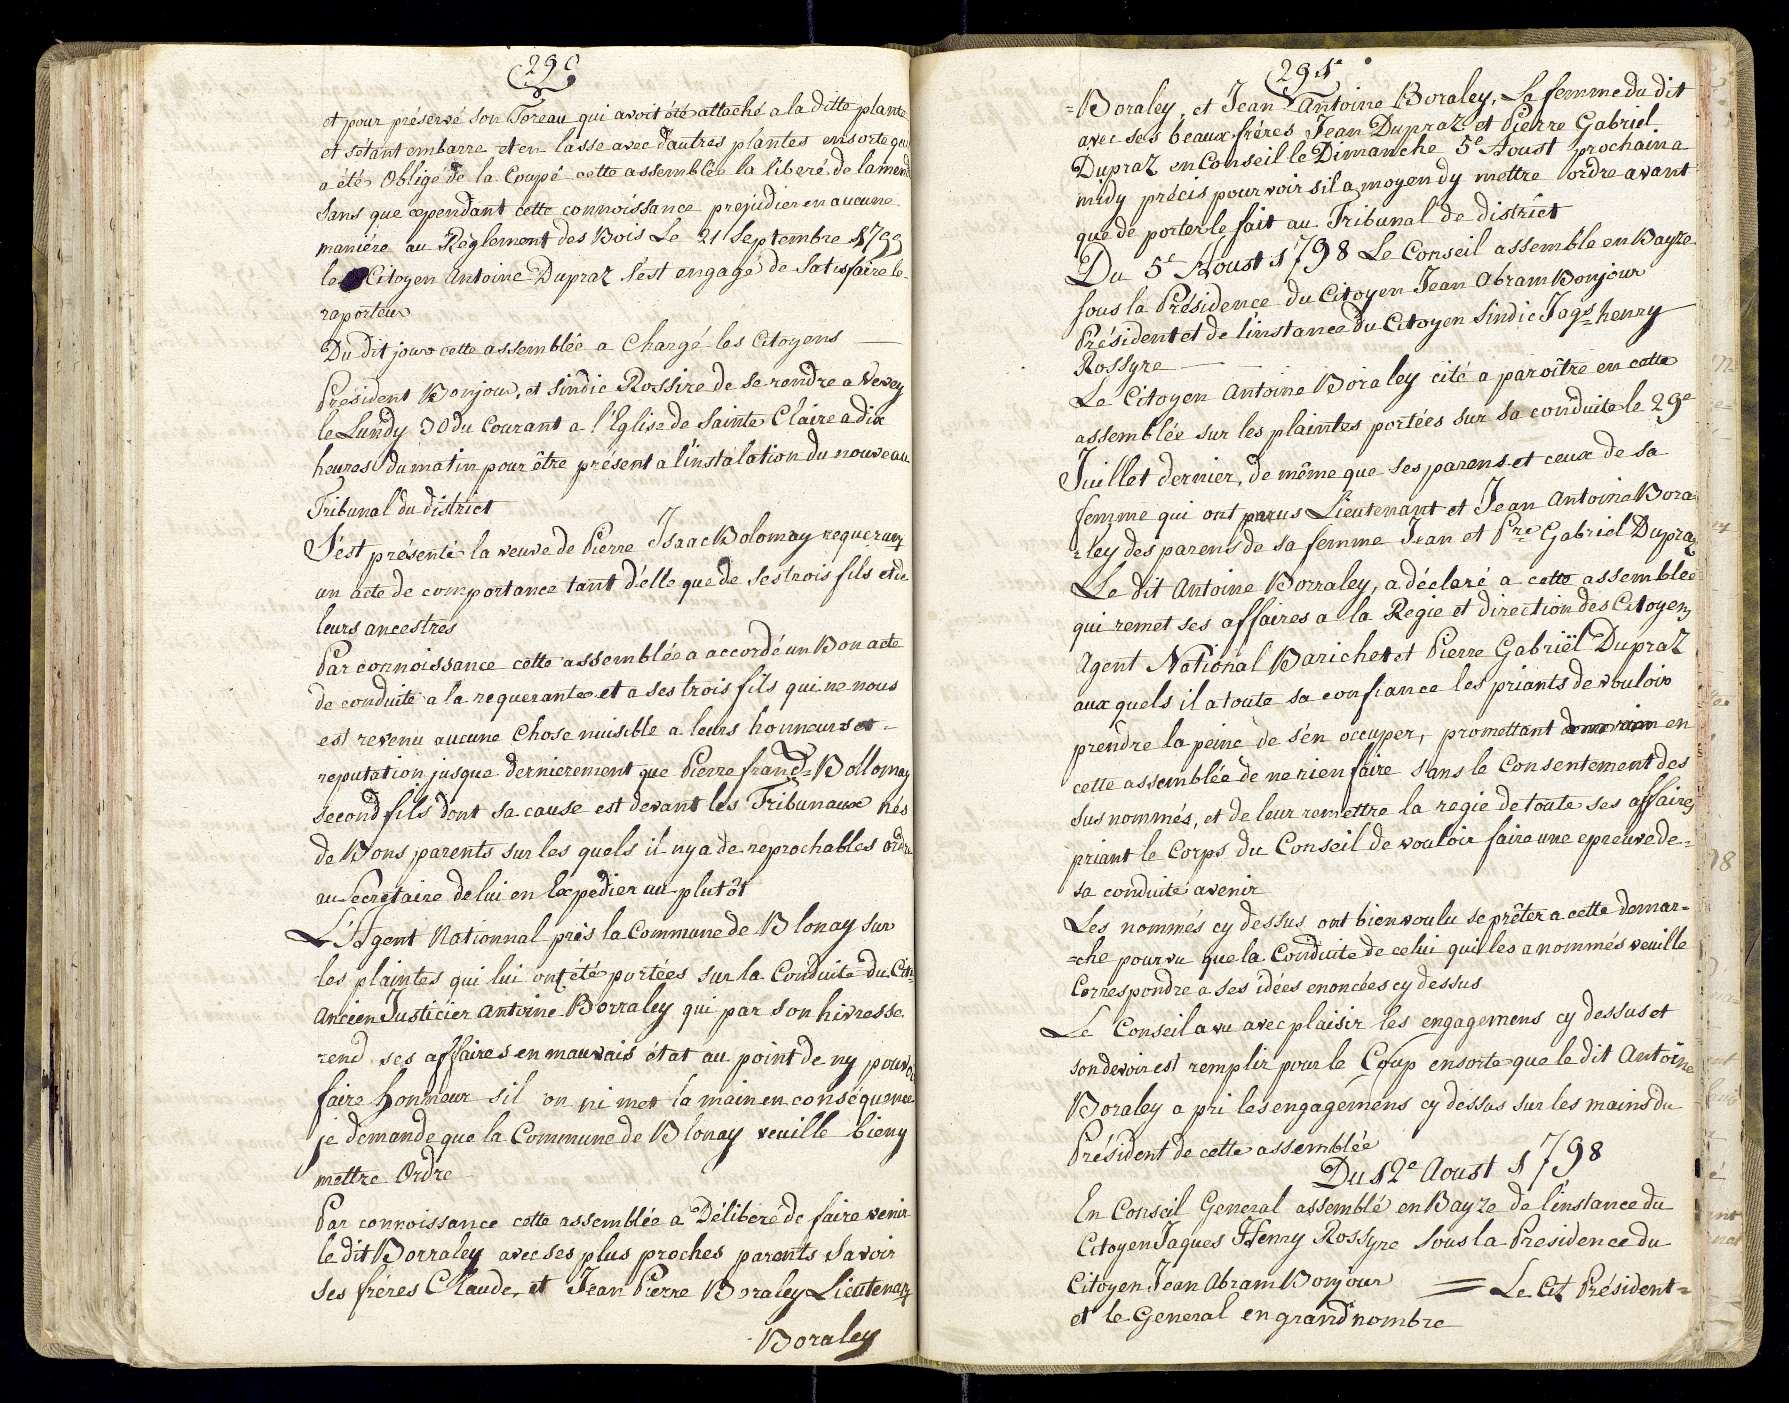 290
et pour préservé son Toreau qui avoit été attaché a la ditte plante
et s'étant embarre et en lasse avec d'autres plantes ensorte que
a été Obligé de la Coupé cette assemblée la liberé de lamende
Sans que cependant cette connoissance prejudier en aucune
maniére au Règlement des Bois Le 21 Septembre 1799
le Citoyen Antoine Dupraz s'est engagé de Satisfaire le
raporteur
Du dit jour cette assemblée a Chargé les Citoyens
Président Bonjour, et Sindic Rossire de se rendre a Vevey
le Lundy 30 du Courant a l'Eglise de Sainte Claire a dix
heures du matin pour être présent a l'instalation du nouveau
Tribunal du district
S'est présenté la veuve de Pierre Isaac Bolomay requerant
un acte de comportance tant d'elle que de ses trois fils et de
leurs ancestres
Par connoissance cette assemblée a accordé un Bon acte
de conduite a la requerante et a ses trois fils qui ne nous
est revenu aucune Chose nuisible a leurs honneurs et
reputation jusque dernierement que Pierre franç= Bollomay
second fils dont sa cause est devant les Tribunaux nés
de Bons parents sur les quels il ny a de reprochables ordre
au Secretaire de lui en Expedier au plutôt
L'Agent Nationnal près la Commune de Blonay sur
les plaintes qui lui ont été portées sur la Conduite du Cit=
Ancien Justicier Antoine Borraley qui par son hivresse
rend ses affaires en mauvais état au point de ny pouvoir
faire honneur s'il on ni met la main en conséquence
je demande que la Commune de Blonay veuille bien y
mettre Ordre
Par connoissance cette assemblée a Délibéré de faire venir
le dit Borraley avec ses plus proches parents Savoir
Ses fréres Claude, et Jean Pierre Boraley Lieutenant
Boraley
291
=Boraley, et Jean Antoine Boraley, La femme du dit
avec ses beaux fréres Jean Dupraz et Pierre Gabriel
Dupraz en Conseil le Dimanche 5e Aoust prochain a
midy précis pour voir s'il a moyen dy mettre ordre avant
que de porter le fait au Tribunal de district
Du 5e Aoust 1798 Le Conseil assemble en Bayze
sous la Présidence du Citoyen Jean Abram Bonjour
Président et de l'instance du Citoyen Sindic Jaqs= henry
Rossyre
Le Citoyen Antoine Boraley cité a paroître en cette
assemblée sur les plaintes portées sur sa conduite le 29e
Juillet dernier, de même que ses parens et ceux de sa
femme qui ont parus Lieutenant et Jean Antoine Bora
=ley des parens de sa femme Jean et Pre Gabriel Dupraz
Le dit Antoine Borraley, a déclaré a cette assemblée
qui remet ses affaires a la Regie et direction des Citoyens
Agent National Barichet et Pierre Gabriël Dupraz
aux quels il a toute sa confiance les priants de vouloir
prendre la peine de s'én occuper, promettant en
cette assemblée de ne rien faire sans le Consentement des
sus nommés, et de leur remettre la regie de toute ses affaires
priant le Corps du Conseil de vouloir faire une epreuve de=
sa conduite avenir
Les nommés cy dessus ont bien voulu se prêter a cette demar=
=che pourvu que la Conduite de celui qui les a nommés veuille
Correspondre a ses idées enoncées cy dessus
Le Conseil a vu avec plaisir les engagemens cy dessus et
son devoir est remplir pour le Coup ensorte que le dit Antoine
Boraley a pri les engagemens cy dessus sur les mains du
Président de cette assemblée
Du 12e Aoust 1798
En Conseil General assemblé en Bayze de l'instance du
Citoyen Jaques Henry Rossyre sous la Presidence du
Citoyen Jean Abram Bonjour = Le Cit Président=
et le General en grand nombre